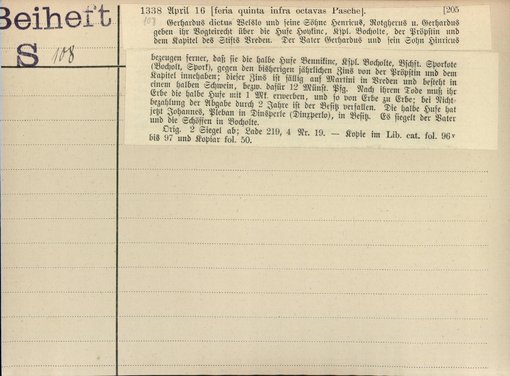 Beiheft
S 108
1338 April 16 [feria quinta infra octavas Pasche]. [205
108
Gerhardus dictus Welslo und seine Söhne Henricus, Rotgherus u. Gerhardus
geben ihr Vogteirecht über die Hufe Hovkine, Kspl. Bocholte, der Pröpstin und
dem Kapitel des Stifts Vreden. Der Vater Gerhardus und sein Sohn Hinricus
bezeugen ferner, daß sie die halbe Hufe Bennikine, Kspl. Bocholte, Bschft. Sporkote
(Bocholt, Spork), gegen den bisherigen jährlichen Zins von der Pröpstin und dem
Kapitel innehaben; dieser Zins ist fällig auf Martini in Vreden und besteht in
einem halben Schwein, bezw. dafür 12 Münst. Pfg. Nach ihrem Tode muß ihr
Erbe die halbe Hufe mit 1 Mk. erwerben, und so von Erbe zu Erbe; bei Nicht-
bezahlung der Abgabe durch 2 Jahre ist der Besitz verfallen. Die halbe Hufe hat
jetzt Johannes, Pleban in Dinsperle (Dinxperlo), in Besitz. Es siegelt der Vater
und die Schöffen in Bocholte.
Orig. 2 Siegel ab; Lade 219, 4 Nr. 19. — Kopie im Lib. cat. fol. 96v
bis 97 und Kopiar fol. 50.